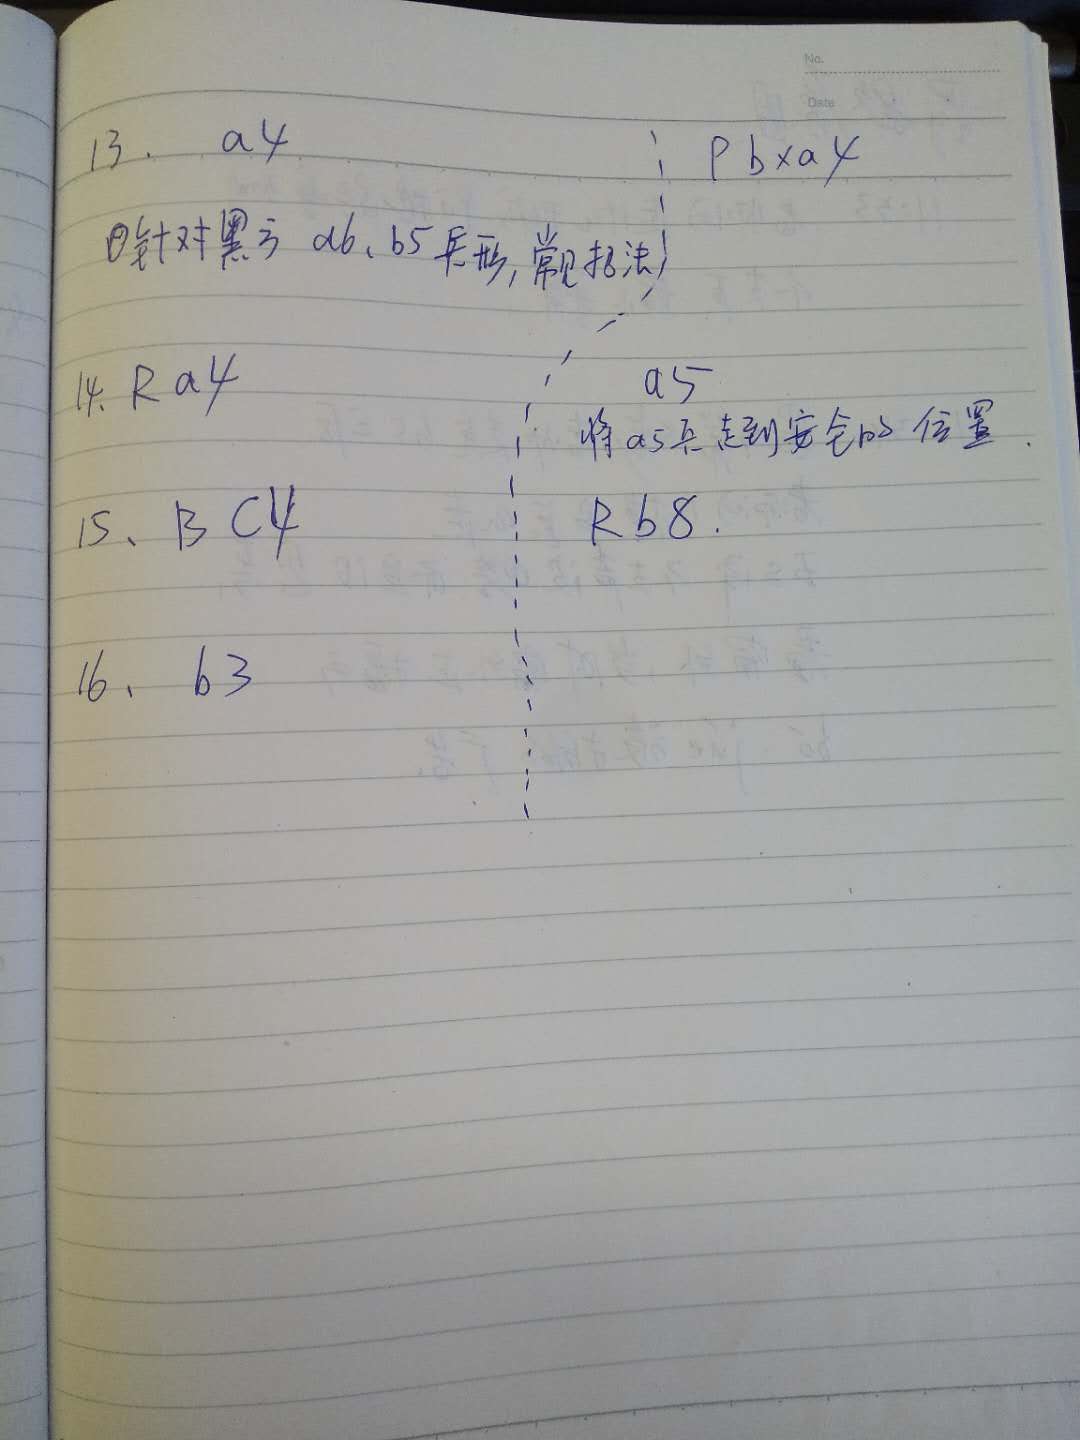 No.
Date
13. a4 Pbxa4
①针对黑方 a6、b5兵形, 常见招法
14. Ra4 a5
将a5兵走到安全的位置.
15、BC4 Rb8.
16、b3